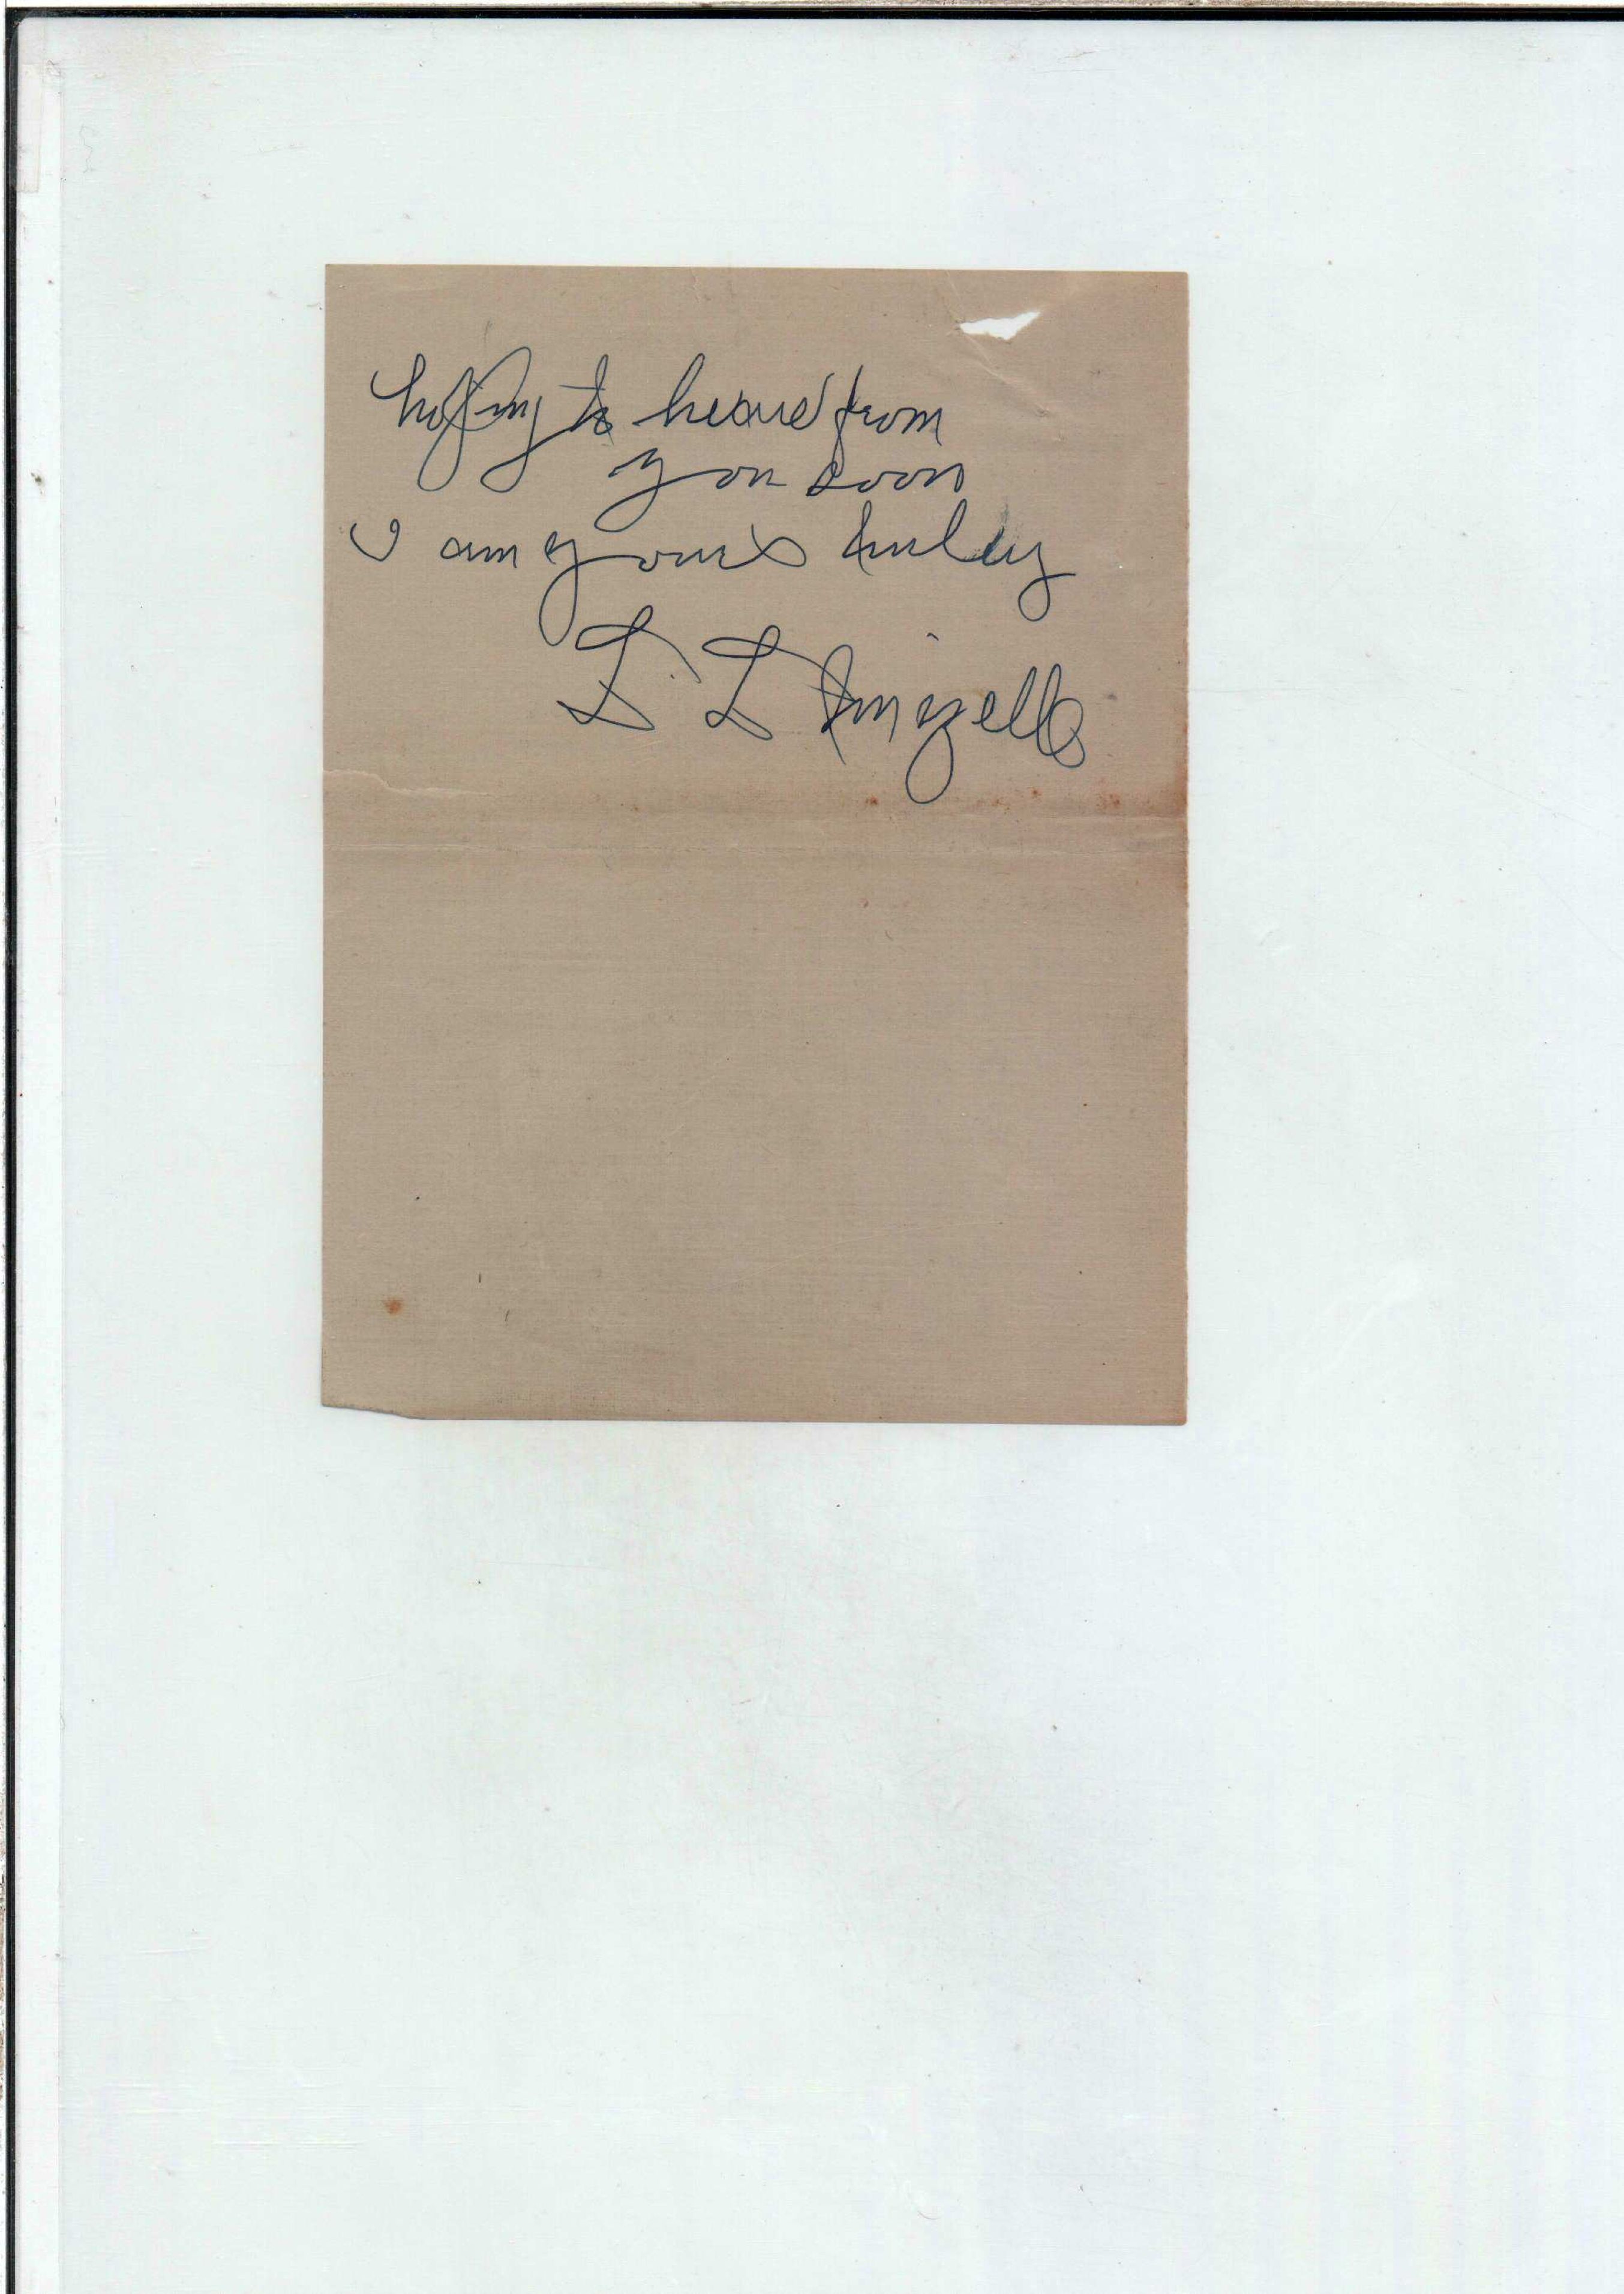 hoping to heare from
you soon
I am yours truley
L L Mizelle